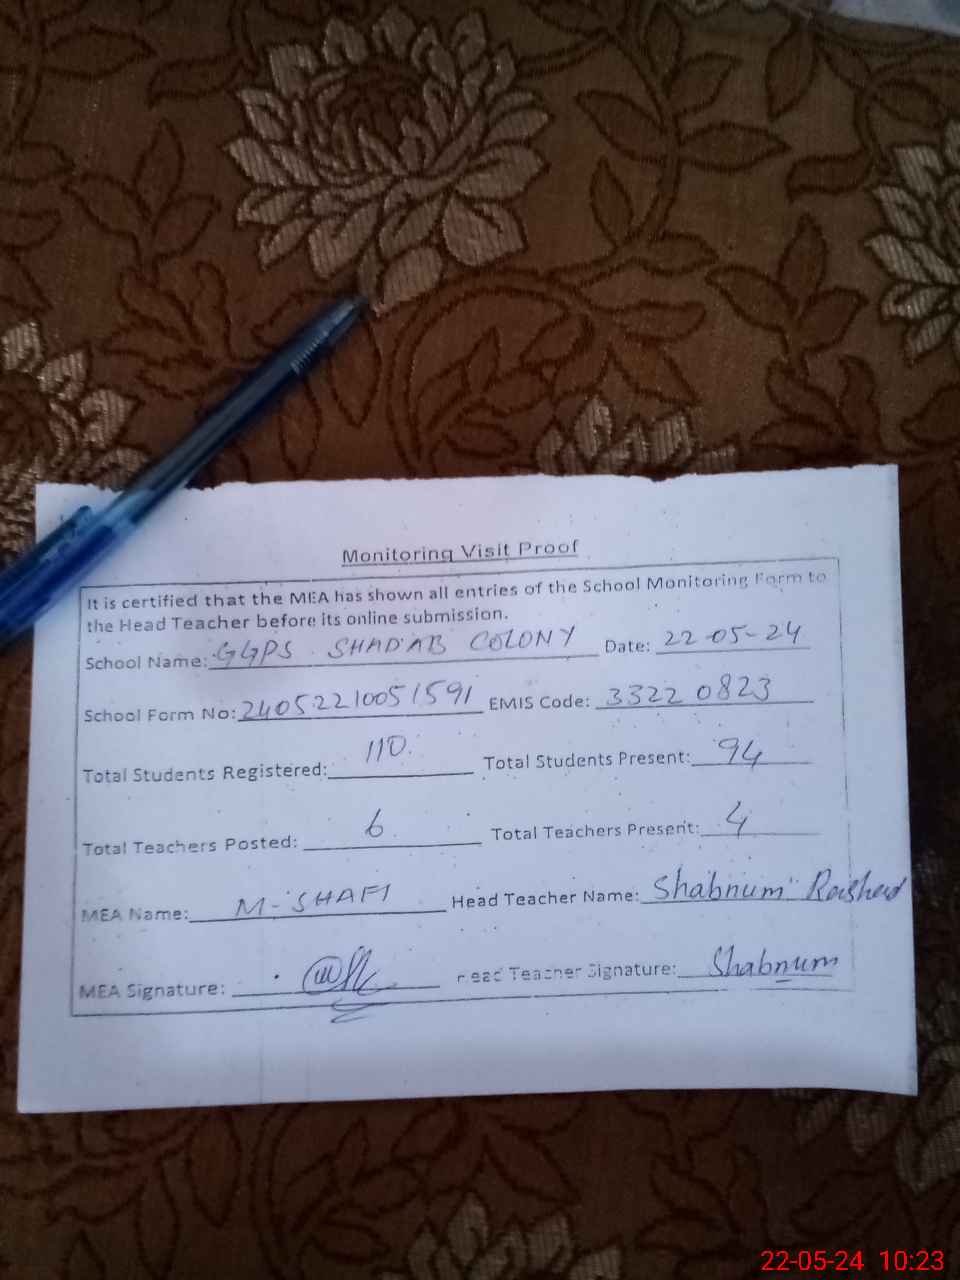 Monitoring Visit Proof
It is certified that the MEA has shown all entries of the School Monitoring Form to
the Head Teacher before its online submission.
School Name: GGPS SHADAB COLONY Date: 22-05-24
School Form No: 24052210051591 EMIS Code: 33220823
Total Students Registered: 110 Total Students Present: 94
Total Teachers Posted: 6 Total Teachers Present: 4
MEA Name: M-SHAFI Head Teacher Name: Shabnum Rashid
MEA Signature: Head Teacher Signature: Shabnum
22-05-24 10:23